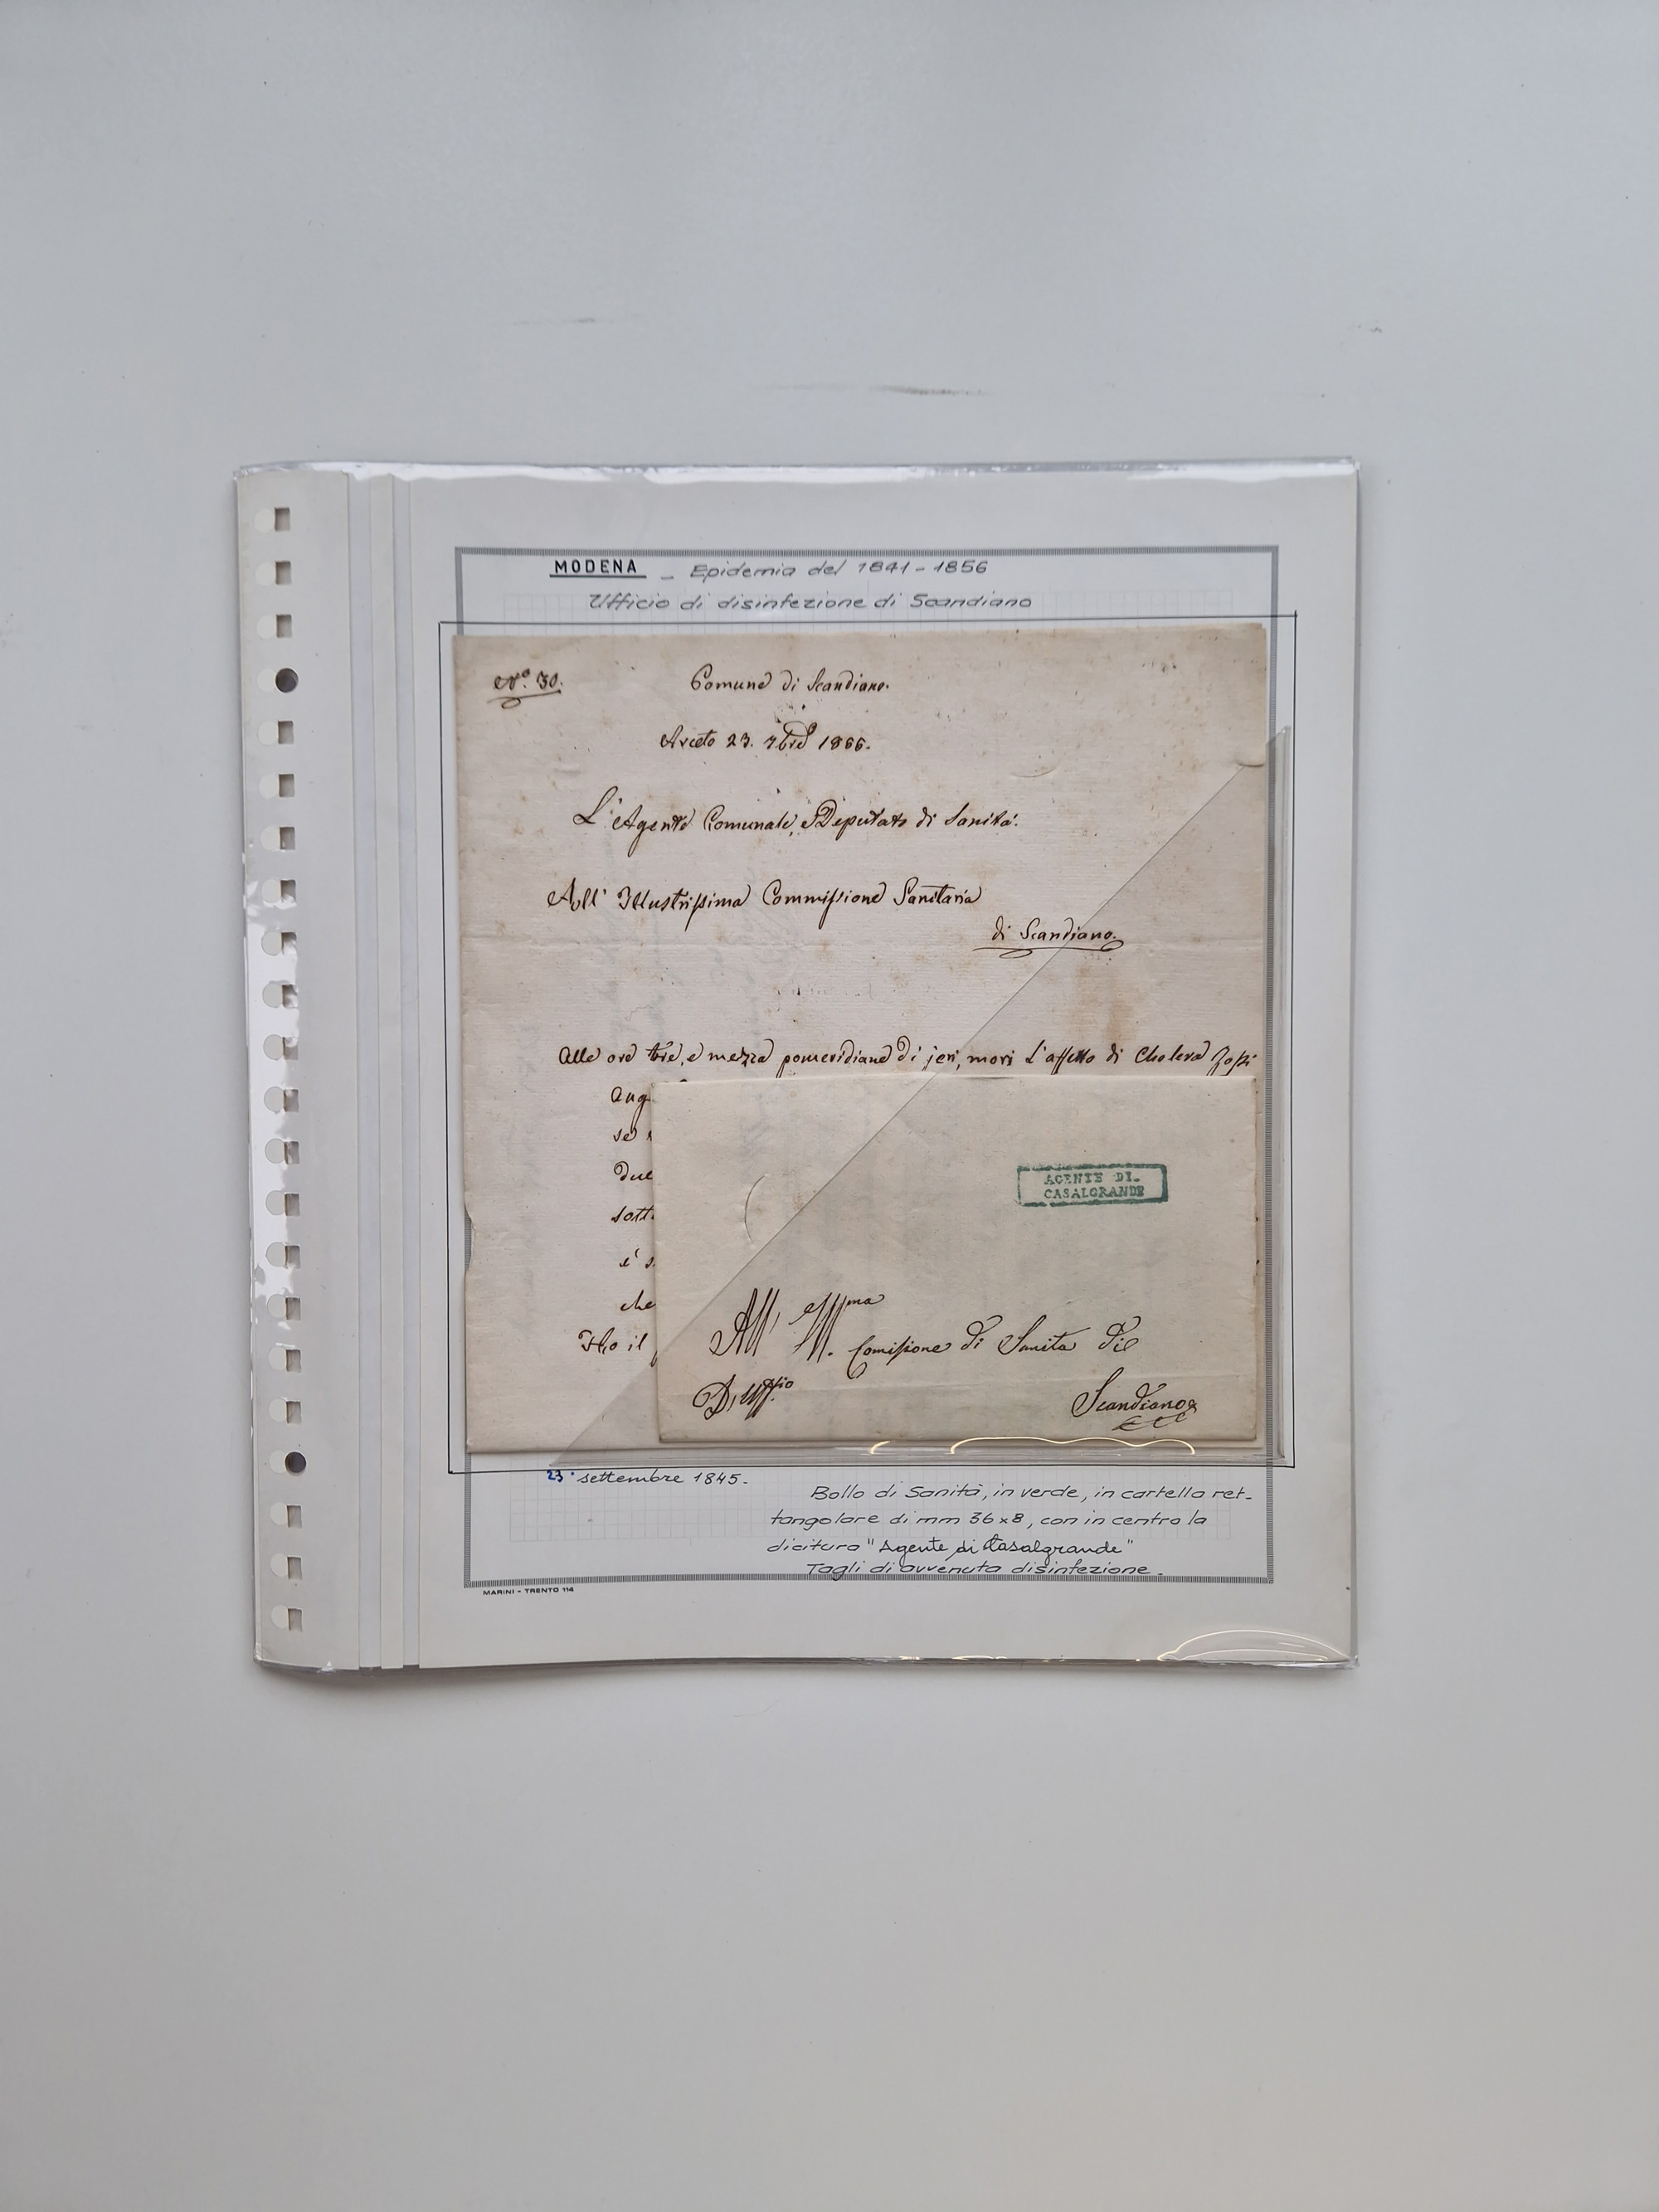 MODENA - Epidemia del 1841-1856
Ufficio di disinfezione di Scandiano
N.º 30.
Comune di Scandiano.
Arceto 23. 7bre
L'Agente Comunale, e Deputato di Sanità.
All' Illustrissima Commissione Sanitaria
di Scandiano.
Alle ore tre, e mezza pomeridiane di jeri, morì l'affetto di Cholera
Aug
se
due
sott
è s
che
Ho il
AGENTE DI
CASALGRANDE
All' Ill.ma Comissione di Sanita di
D'Uffio
Scandiano
23. settembre 1845.
Bollo di Sanità, in verde, in cartella ret-
tangolare di mm 36x8, con in centro la
dicitura "Agente di Casalgrande"
Tagli di avvenuta disinfezione.
MARINI - TRENTO 114